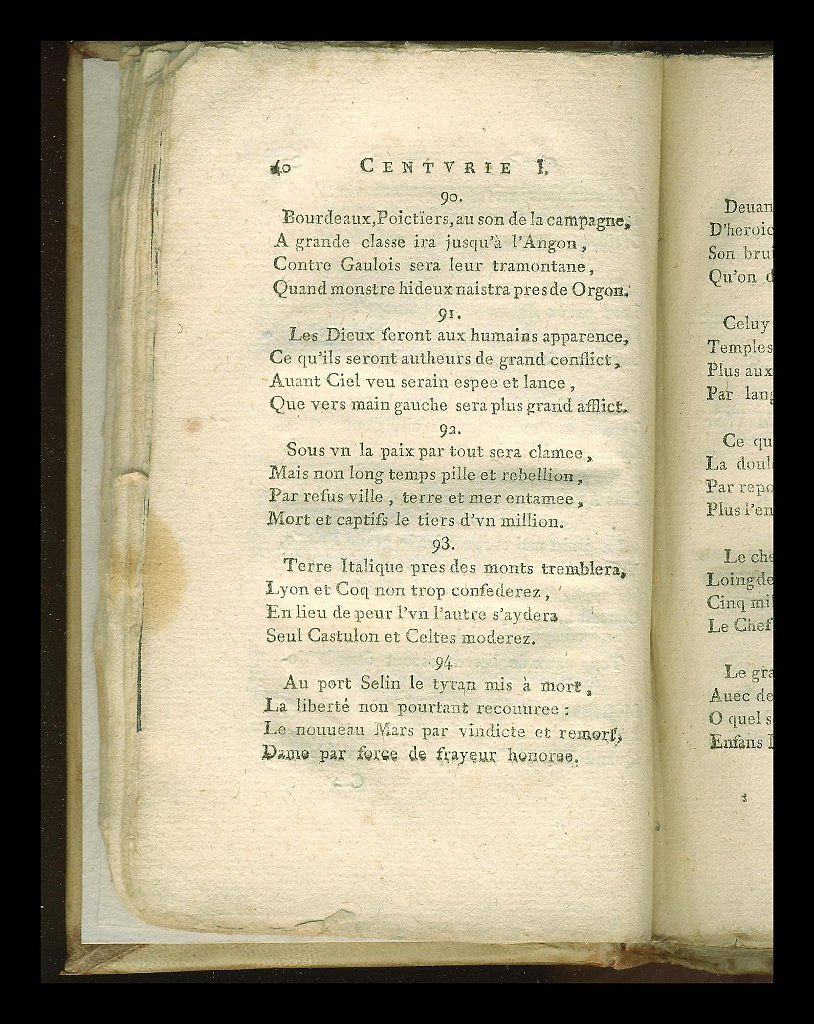 40 CENTVRIE I.
90.
Bourdeaux, Poictiers, au son de la campagne,
A grande classe ira jusqu'à l'Angon,
Contre Gaulois sera leur tramontane,
Quand monstre hideux naistra pres de Orgon.
91.
Les Dieux feront aux humains apparence,
Ce qu'ils seront autheurs de grand conflict,
Auant Ciel veu serain espee et lance,
Que vers main gauche sera plus grand afflict.
92.
Sous vn la paix par tout sera clamee,
Mais non long temps pille et rebellion,
Par refus ville, terre et mer entamee,
Mort et captifs le tiers d'vn million.
93.
Terre Italique pres des monts tremblera,
Lyon et Coq non trop confederez,
En lieu de peur l'vn l'autre s'aydera
Seul Castulon et Celtes moderez.
94
Au port Selin le tyran mis à mort,
La liberté non pourtant recouuree:
Le nouueau Mars par vindicte et remort,
Dame par force de frayeur honoree.
Deuan
D'heroic
Son brui
Qu'on d
Celuy
Temples
Plus aux
Par lang
Ce qu
La doul
Par repo
Plus l'en
Le che
Loing de
Cinq mil
Le Chef
Le gra
Auec de
O quel s
Enfans